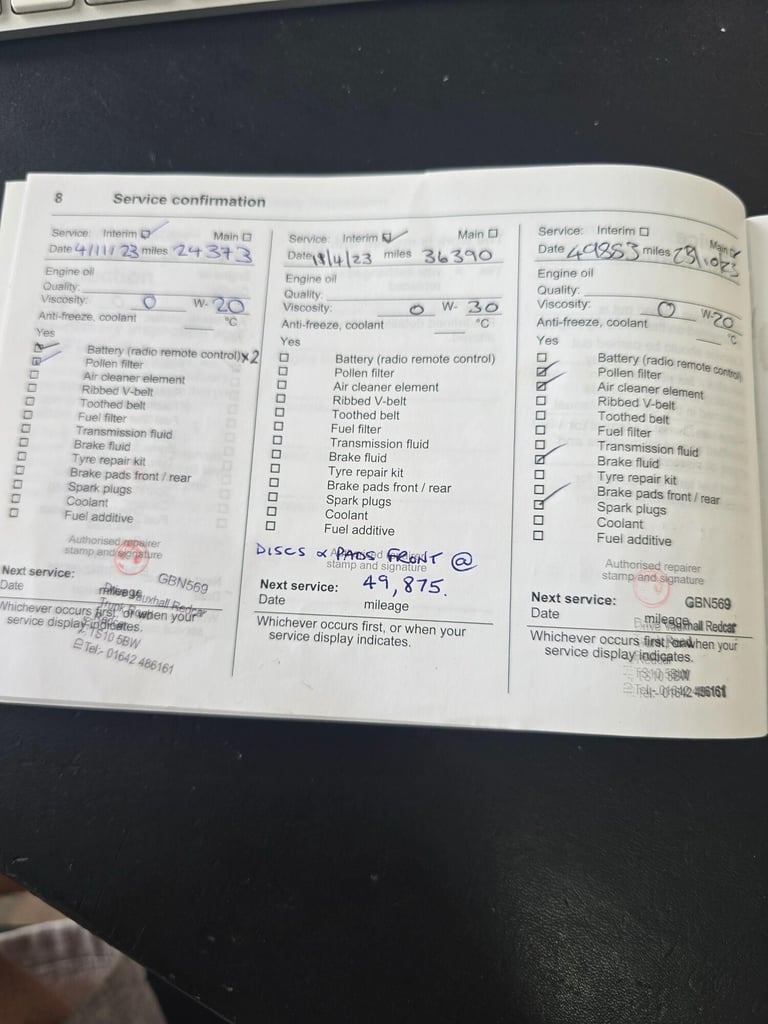 8 Service confirmation
Service: Interim Main
Date 4/11/23 miles 24373
Engine oil
Quality:
Viscosity: 0 W- 20
Anti-freeze, coolant °C
Yes
Battery (radio remote control) x2
Pollen filter
Air cleaner element
Ribbed V-belt
Toothed belt
Fuel filter
Transmission fluid
Brake fluid
Tyre repair kit
Brake pads front / rear
Spark plugs
Coolant
Fuel additive
Authorised repairer
stamp and signature
Next service: GBN569
Date mileage Vauxhall Redcar
Whichever occurs first, or when your
service display indicates.
TS10 5BW
Tel:- 01642 486161
Service: Interim Main
Date /4/23 miles 36390
Engine oil
Quality:
Viscosity: 0 W- 30
Anti-freeze, coolant °C
Yes
Battery (radio remote control)
Pollen filter
Air cleaner element
Ribbed V-belt
Toothed belt
Fuel filter
Transmission fluid
Brake fluid
Tyre repair kit
Brake pads front / rear
Spark plugs
Coolant
Fuel additive
DISCS & PADS FRONT @
stamp and signature
Next service: 49,875.
Date mileage
Whichever occurs first, or when your
service display indicates.
Service: Interim Main
Date 49853 miles
Engine oil
Quality:
Viscosity: 0 W- 20
Anti-freeze, coolant °C
Yes
Battery (radio remote control)
Pollen filter
Air cleaner element
Ribbed V-belt
Toothed belt
Fuel filter
Transmission fluid
Brake fluid
Tyre repair kit
Brake pads front / rear
Spark plugs
Coolant
Fuel additive
Authorised repairer
stamp and signature
Next service: GBN569
Date mileage Drive Vauxhall Redcar
Whichever occurs first, or when your
service display indicates.
TS10 5BW
Tel:- 01642 486161